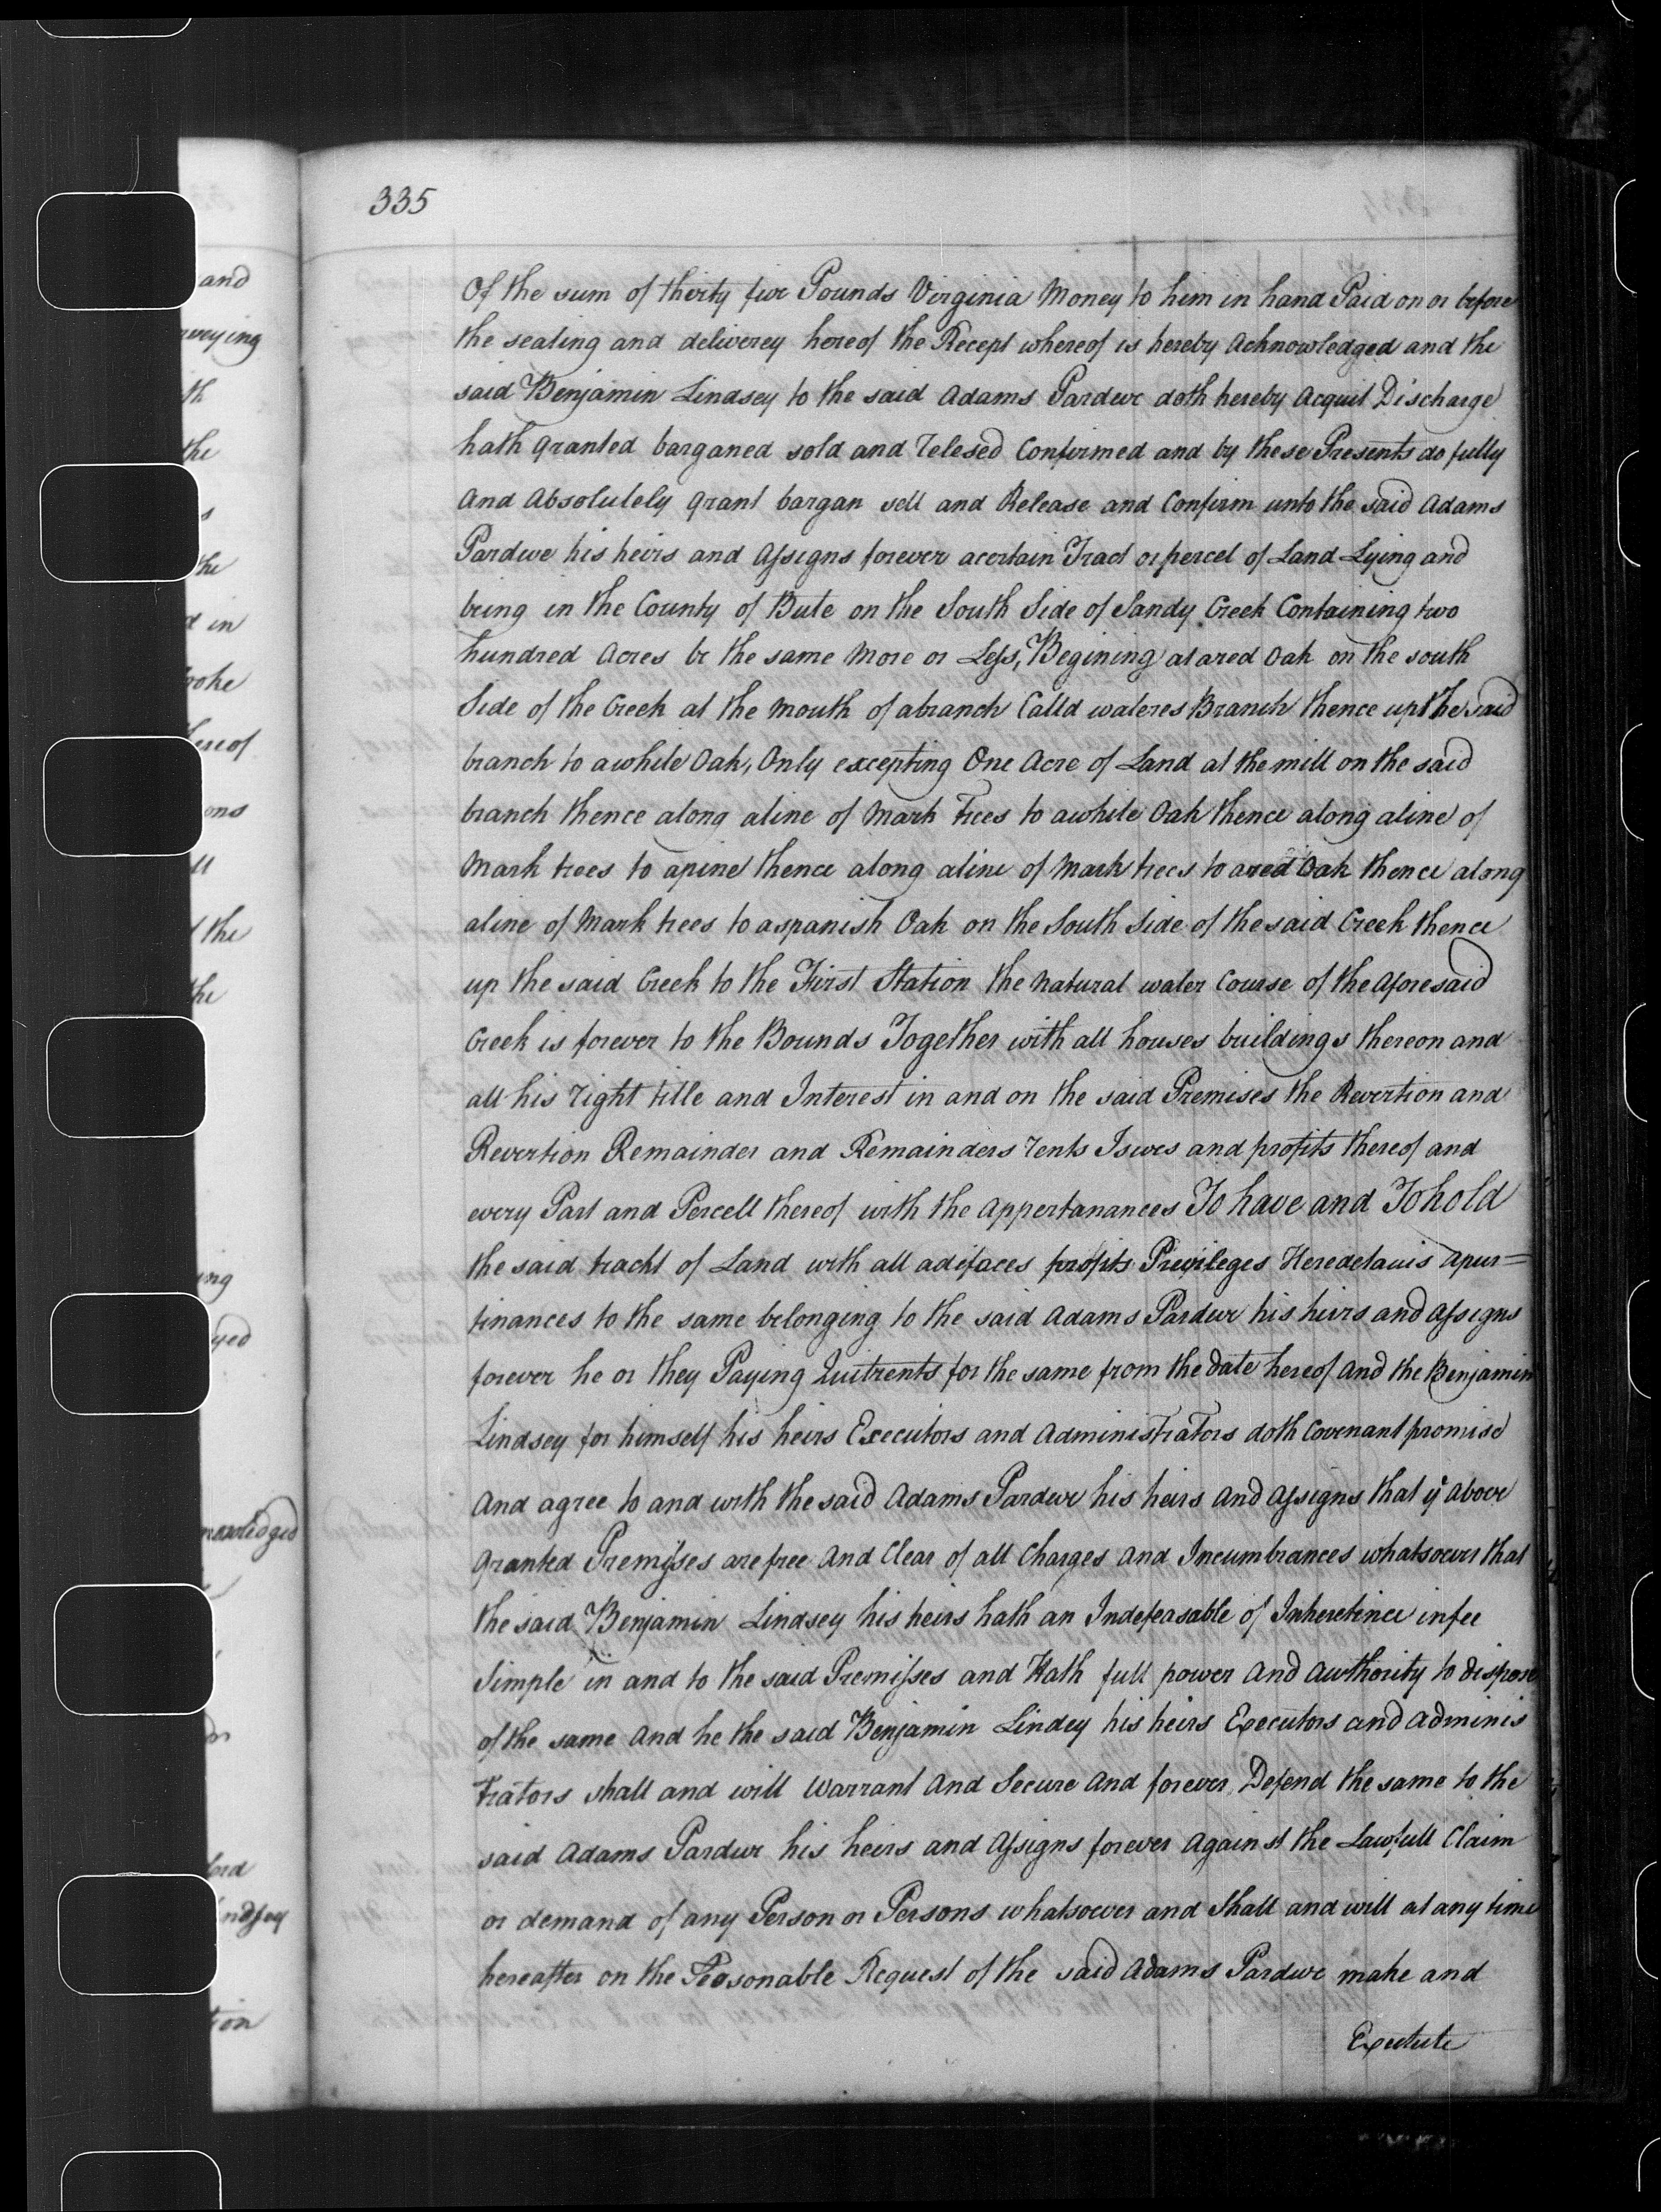 335
Of the sum of thirty five Pounds Virginia Money to him in hand Paid on or before
the sealing and deliverey hereof the Recept whereof is hereby Acknowledged and the
said Benjamin Lindsey to the said Adams Pardue doth hereby Acquit Discharge
hath granted barganed sold and relesed Confirmed and by these Presents do fully
And Absolutely grant bargan sell and Release and Confirm unto the said Adams
Pardue his heirs and Assigns forever acertain Tract or percel of Land Lying and
being in the County of Bute on the South Side of Sandy Creek Containing two
hundred Acres be the same More or Less, Begining at ared Oak on the south
Side of the Creek at the Mouth of abranch Calld wateres Branch thence up the said
branch to awhite Oak, Only excepting One Acre of Land at the mill on the said
branch thence along aline of Mark Trees to awhite Oak thence along aline of
Mark trees to apine thence along aline of Mark trees to ared Oak thence along
aline of Mark trees to aspanish Oak on the South Side of the said Creek thence
up the said Creek to the First Station the Natural water Course of the Aforesaid
Creek is forever to the Bounds Together with all houses buildings thereon and
all his right title and Interest in and on the said Premises the Revertion and
Revertion Remainder and Remainders rents Isues and profits thereof and
every Part and Percell thereof with the Appertanances To have and To hold
the said tracht of Land with all adifaces profits Privileges Heredetauis Apur=
tinances to the same belonging to the said Adams Pardue his heirs and Assigns
forever he or they Paying Quitrents for the same from the date hereof And the Benjamin
Lindsey for himself his heirs Executors and Administrators doth Covenant promise
And agree to and with the said Adams Pardue his heirs And Assigns that ye Above
granted Premises are free And Clear of all Charges And Incumbrances whatsoever that
the said Benjamin Lindsey his heirs hath an Indefeasable of Inheretince infee
Simple in and to the said Premisses and Hath full power And Awthority to dispose
of the same And he the said Benjamin Lindey his heirs Executors and Adminis
trators shall and will Warrant And Secure And forever Defend the same to the
said Adams Pardue his heirs and Assigns forever Against the Lawfull Claim
or demand of any Person or Persons whatsoever and Shall and will at any time
hereafter on the Reasonable Request of the said Adams Pardue make and
Exetute
and
the
the
in
hereof
the
the